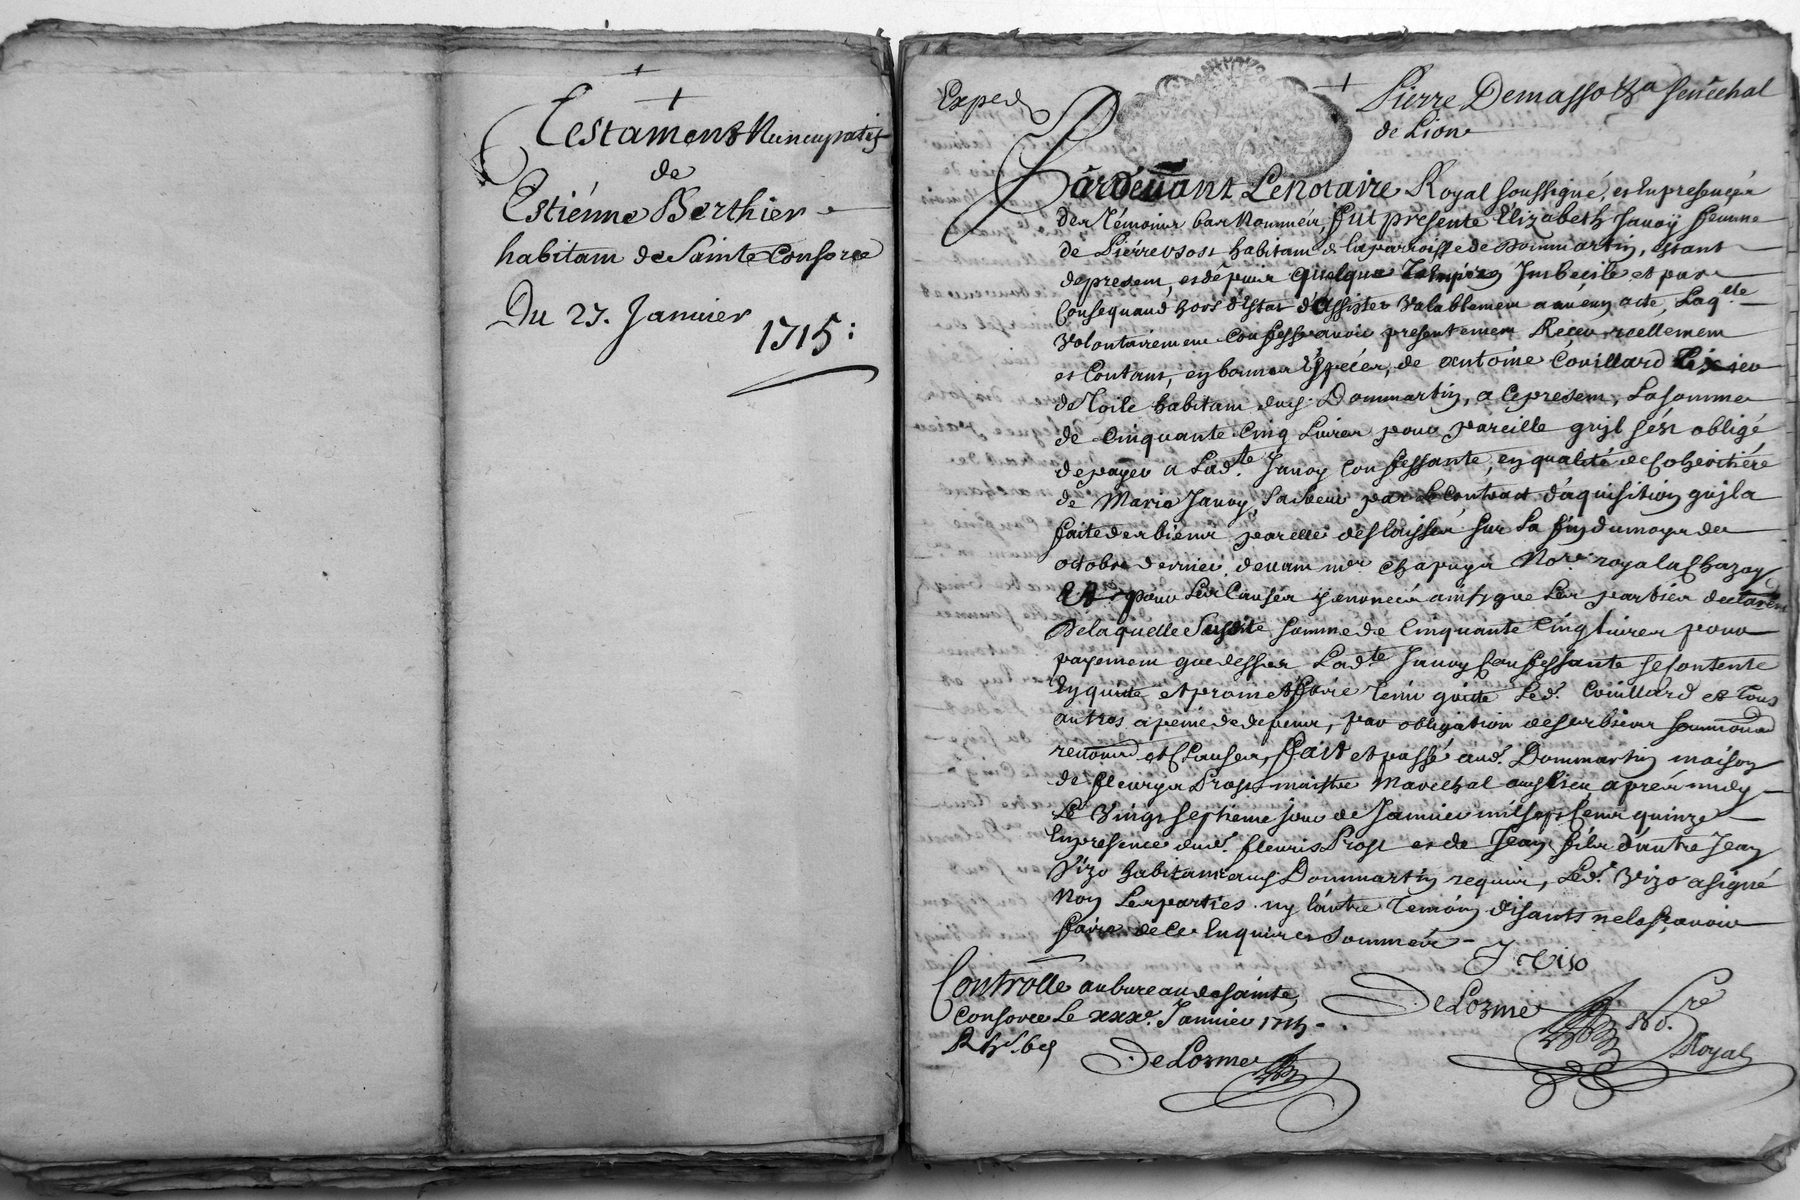 Testament Nuncupatif
de
Estienne Berthier
habitam de Sainte Consorce
Du 27. Janvier
1715:
Exped
Pierre Demasso &a Senechal
de Lion
Pardevant Le notaire Royal soussigné, et En presence
des Témoins bas Nommés, fut presente Elizabeth Janoy femme
de Pierre habitam de la parroisse de Dommartin, estant
de presem, et dépuis quelque Temps en Imbecile et par
Consequand hors d'Estat d'assister Valablement a aucun acte, Laqlle
Volontairemem Confesse avoir presentemem Receu reellemem
et Contant, en bonnes Espéces, de antoine Coüillard Tixier
de Toile habitam dud. Dommartin, a Ce presem, La somme
de Cinquante Cinq Livres pour pareille qu'il s'est obligé
de payer a Ladte Janoy Confessante, en qualité de Coheritiére
de Marie Janoy, par Le Contract d'aquisition qu'il a
faite des biens par elle déslaissés sur La fin du moys de
octobre dernier devam mer Chapuys Nore royal a Chazay
Et pour Les Causes y enoncées ainsy que Les parties declarent
De laquelle Susdite somme de Cinquante Cinq livres pour
payemem que dessus Ladte Janoy Confessante se Contente
En quitte et promet faire Tenir quitte Led. Coüillard et Tous
autres a peine de despens, par obligation de ses biens soumissiond
renond et Clauses, fait et passé aud. Dommartin maison
de fleurys Prost maistre Marechal aud. Lieu, aprés midy
Le Vingt septieme jour de Janvier mil sept Cent quinze
En presence dud. fleuris Prost et de Jean fils d'autre Jean
Vizo habitans dud. Dommartin requis, Led. Vizo a signé
Non Les parties ny l'autre Temoin disants ne le sçavoir
faire de Ce Enquis et Sommés -
J Viso
Controllé au bureau de sainte
Consorce Le xxxe. Janvier 1715 -
DeLorme
Nore
Royal
DeLorme